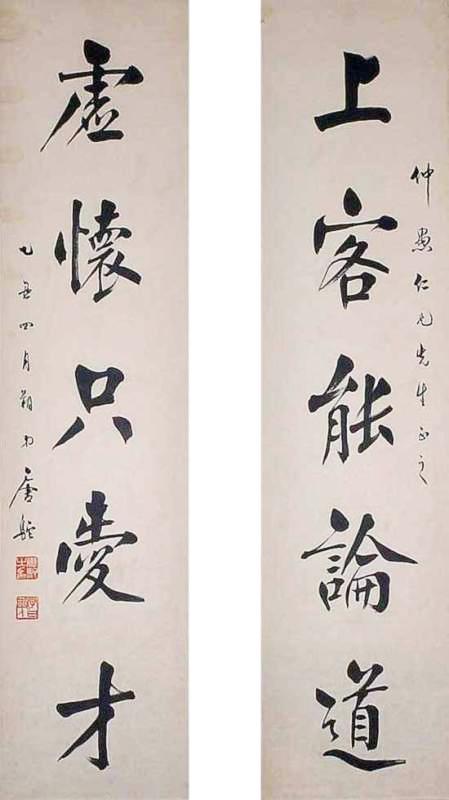 仲愚仁兄先生正之
上客能論道
虛懷只愛才
乙丑四月朔弟唐駝